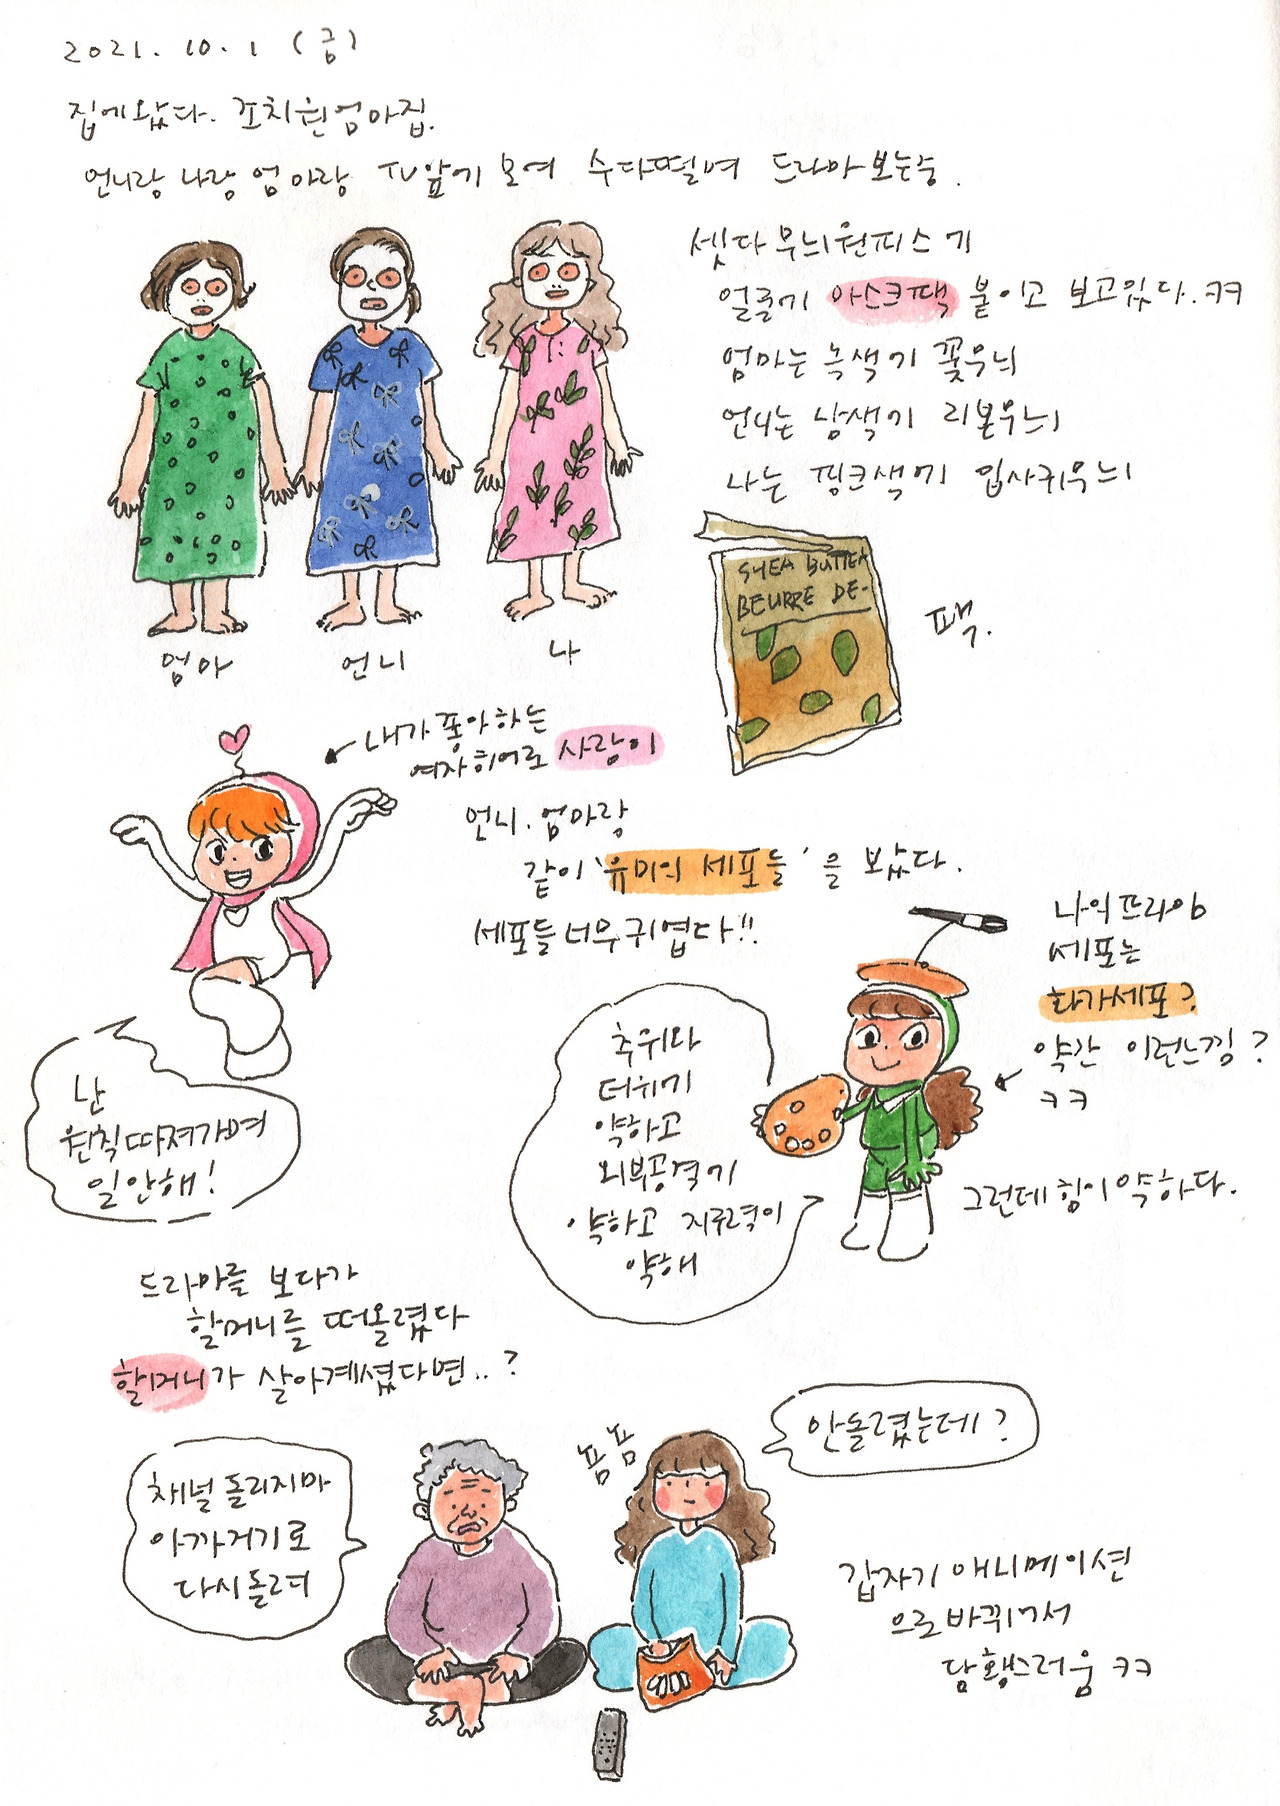 2021. 10. 1 (금)
집에 왔다. 조치원 엄마집.
언니랑 나랑 엄마랑 TV앞에 모여 수다떨며 드라마 보는중.
셋다 무늬원피스에
얼굴에 마스크팩 붙이고 보고있다. ㅋㅋ
엄마는 녹색에 꽃무늬
언니는 남색에 리본무늬
나는 핑크색에 잎사귀무늬
엄마
언니
나
SHEA BUTTER
BEURRE DE-
팩.
내가 좋아하는
여자히어로 사랑이
언니. 엄마랑
같이 '유미의 세포들'을 봤다.
세포들 너무 귀엽다!!
난
원칙 따져가며
일 안해!
나의 프라임
세포는
화가세포?
약간 이런느낌?
ㅋㅋ
추위와
더위에
약하고
외부공격에
약하고 지구력이
약해
그런데 힘이 약하다.
드라마를 보다가
할머니를 떠올렸다
할머니가 살아계셨다면..?
채널 돌리지마
아까거기로
다시돌려
냠냠
안돌렸는데?
갑자기 애니메이션
으로 바뀌어서
당황스러움 ㅋㅋ